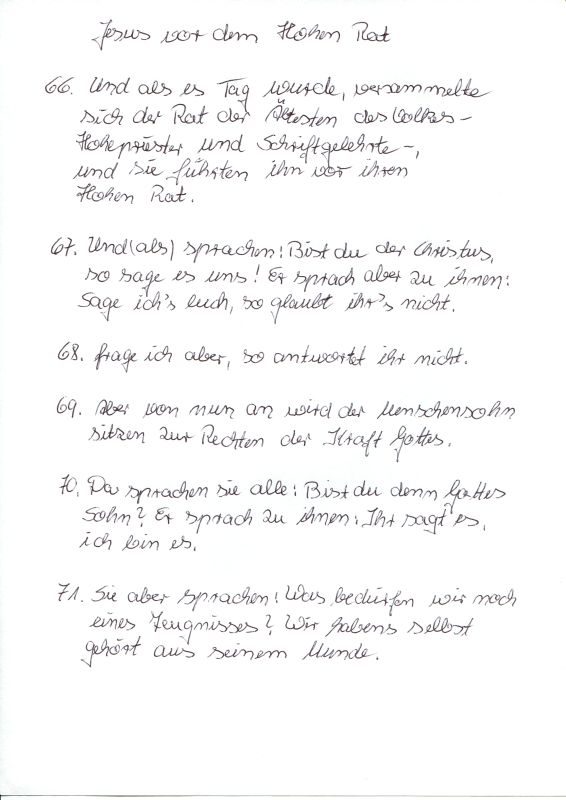 Jesus vor dem Hohen Rat
66. Und als es Tag wurde, versammelte
sich der Rat der Ältesten des Volkes –
Hohepriester und Schriftgelehrte –,
und sie führten ihn vor ihren
Hohen Rat.
67. Und (als) sprachen: Bist du der Christus,
so sage es uns! Er sprach aber zu ihnen:
Sage ich's euch, so glaubt ihr's nicht.
68. frage ich aber, so antwortet ihr nicht.
69. Aber von nun an wird der Menschensohn
sitzen zur Rechten der Kraft Gottes.
70. Da sprachen sie alle: Bist du denn Gottes
Sohn? Er sprach zu ihnen: Ihr sagt es,
ich bin es.
71. Sie aber sprachen: Was bedürfen wir noch
eines Zeugnisses? Wir habens selbst
gehört aus seinem Munde.